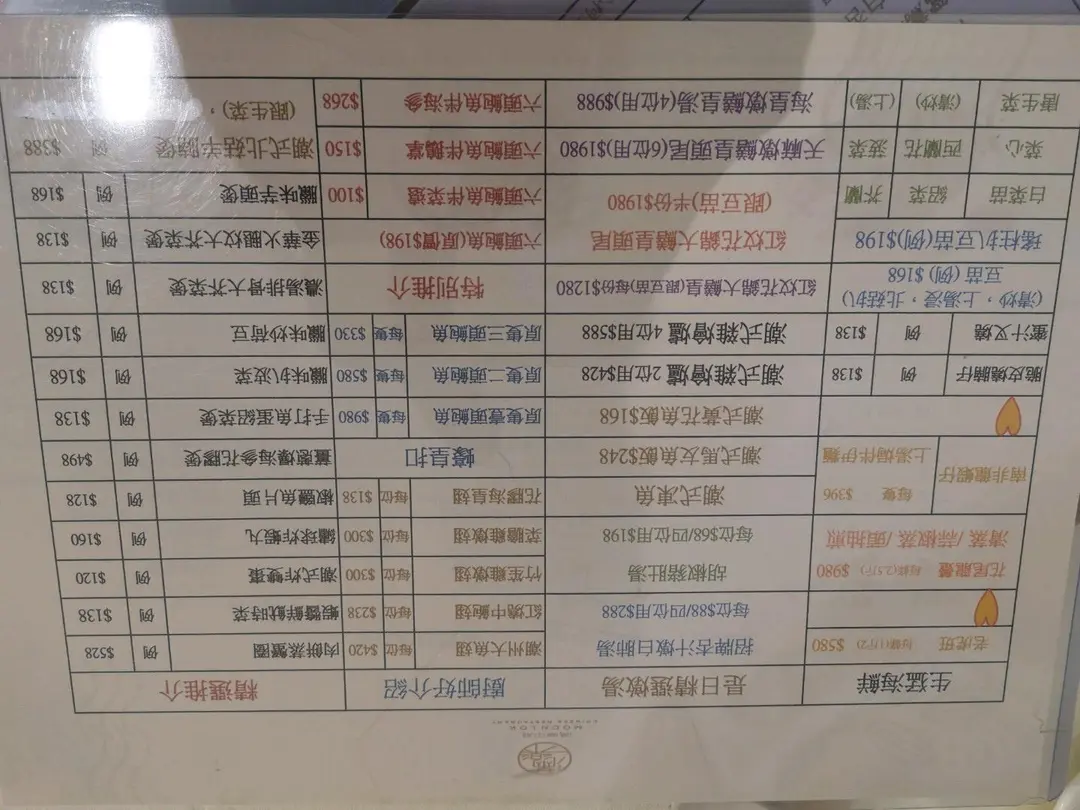 MOON LOK
CHINESE RESTAURANT
生猛海鮮 是日精選燉湯 廚師好介紹 精選推介
老虎斑 $580 招牌杏汁燉白肺湯 潮州大魚翅 每位 $420 肉餅蒸蟹圓 例 $528
每位$88/四位用$288 紅燒中鮑翅 每位 $238 蝦醬鮮魷時菜 例 $138
花尾龍躉 $980 胡椒豬肚湯 竹笙雞燉翅 每位 $300 潮式炸雙棗 例 $120
清蒸/蒜椒蒸/頭抽煎 每位$68/四位用$198 菜膽雞燉翅 每位 $300 繡球炸蝦丸 例 $160
南非龍蝦仔 每隻 $396 潮式凍魚 花膠海皇翅 每位 $138 椒鹽魚片頭 例 $128
上湯焗伴伊麵 潮式馬友魚飯$248 蠔皇扣 薑蔥爆海參花膠煲 例 $498
潮式黃花魚飯$168 原隻壹頭鮑魚 每隻 $980 手打魚蛋紹菜煲 例 $138
脆皮燒腩仔 例 $138 潮式雜燴爐 2位用$428 原隻二頭鮑魚 每隻 $580 臘味扒菠菜 例 $168
蜜汁叉燒 例 $138 潮式雜燴爐 4位用$588 原隻三頭鮑魚 每隻 $330 臘味炒荷豆 例 $168
豆苗 (例) $168 紅紋花錦大鱔皇(跟豆苗)每份$1280 特別推介 濃湯排骨大芥菜煲 例 $138
(清炒，上湯浸，北菇扒)
瑤柱扒豆苗(例)$198 紅紋花錦大鱔皇頭尾 六頭鮑魚(原價$198) 金華火腿炆大芥菜煲 例 $138
白菜苗 紹菜 芥蘭 (跟豆苗)半份$1980 六頭鮑魚伴菜遠 $100 臘味芋頭煲 例 $168
菜心 西蘭花 菠菜 天麻燉鱔皇頭尾(6位用)$1980 六頭鮑魚伴鵝掌 $150 潮式北菇羊腩煲 例 $388
唐生菜 (清炒) (上湯) 海皇燉鱔皇湯(4位用)$988 六頭鮑魚伴海參 $268 (跟生菜)，